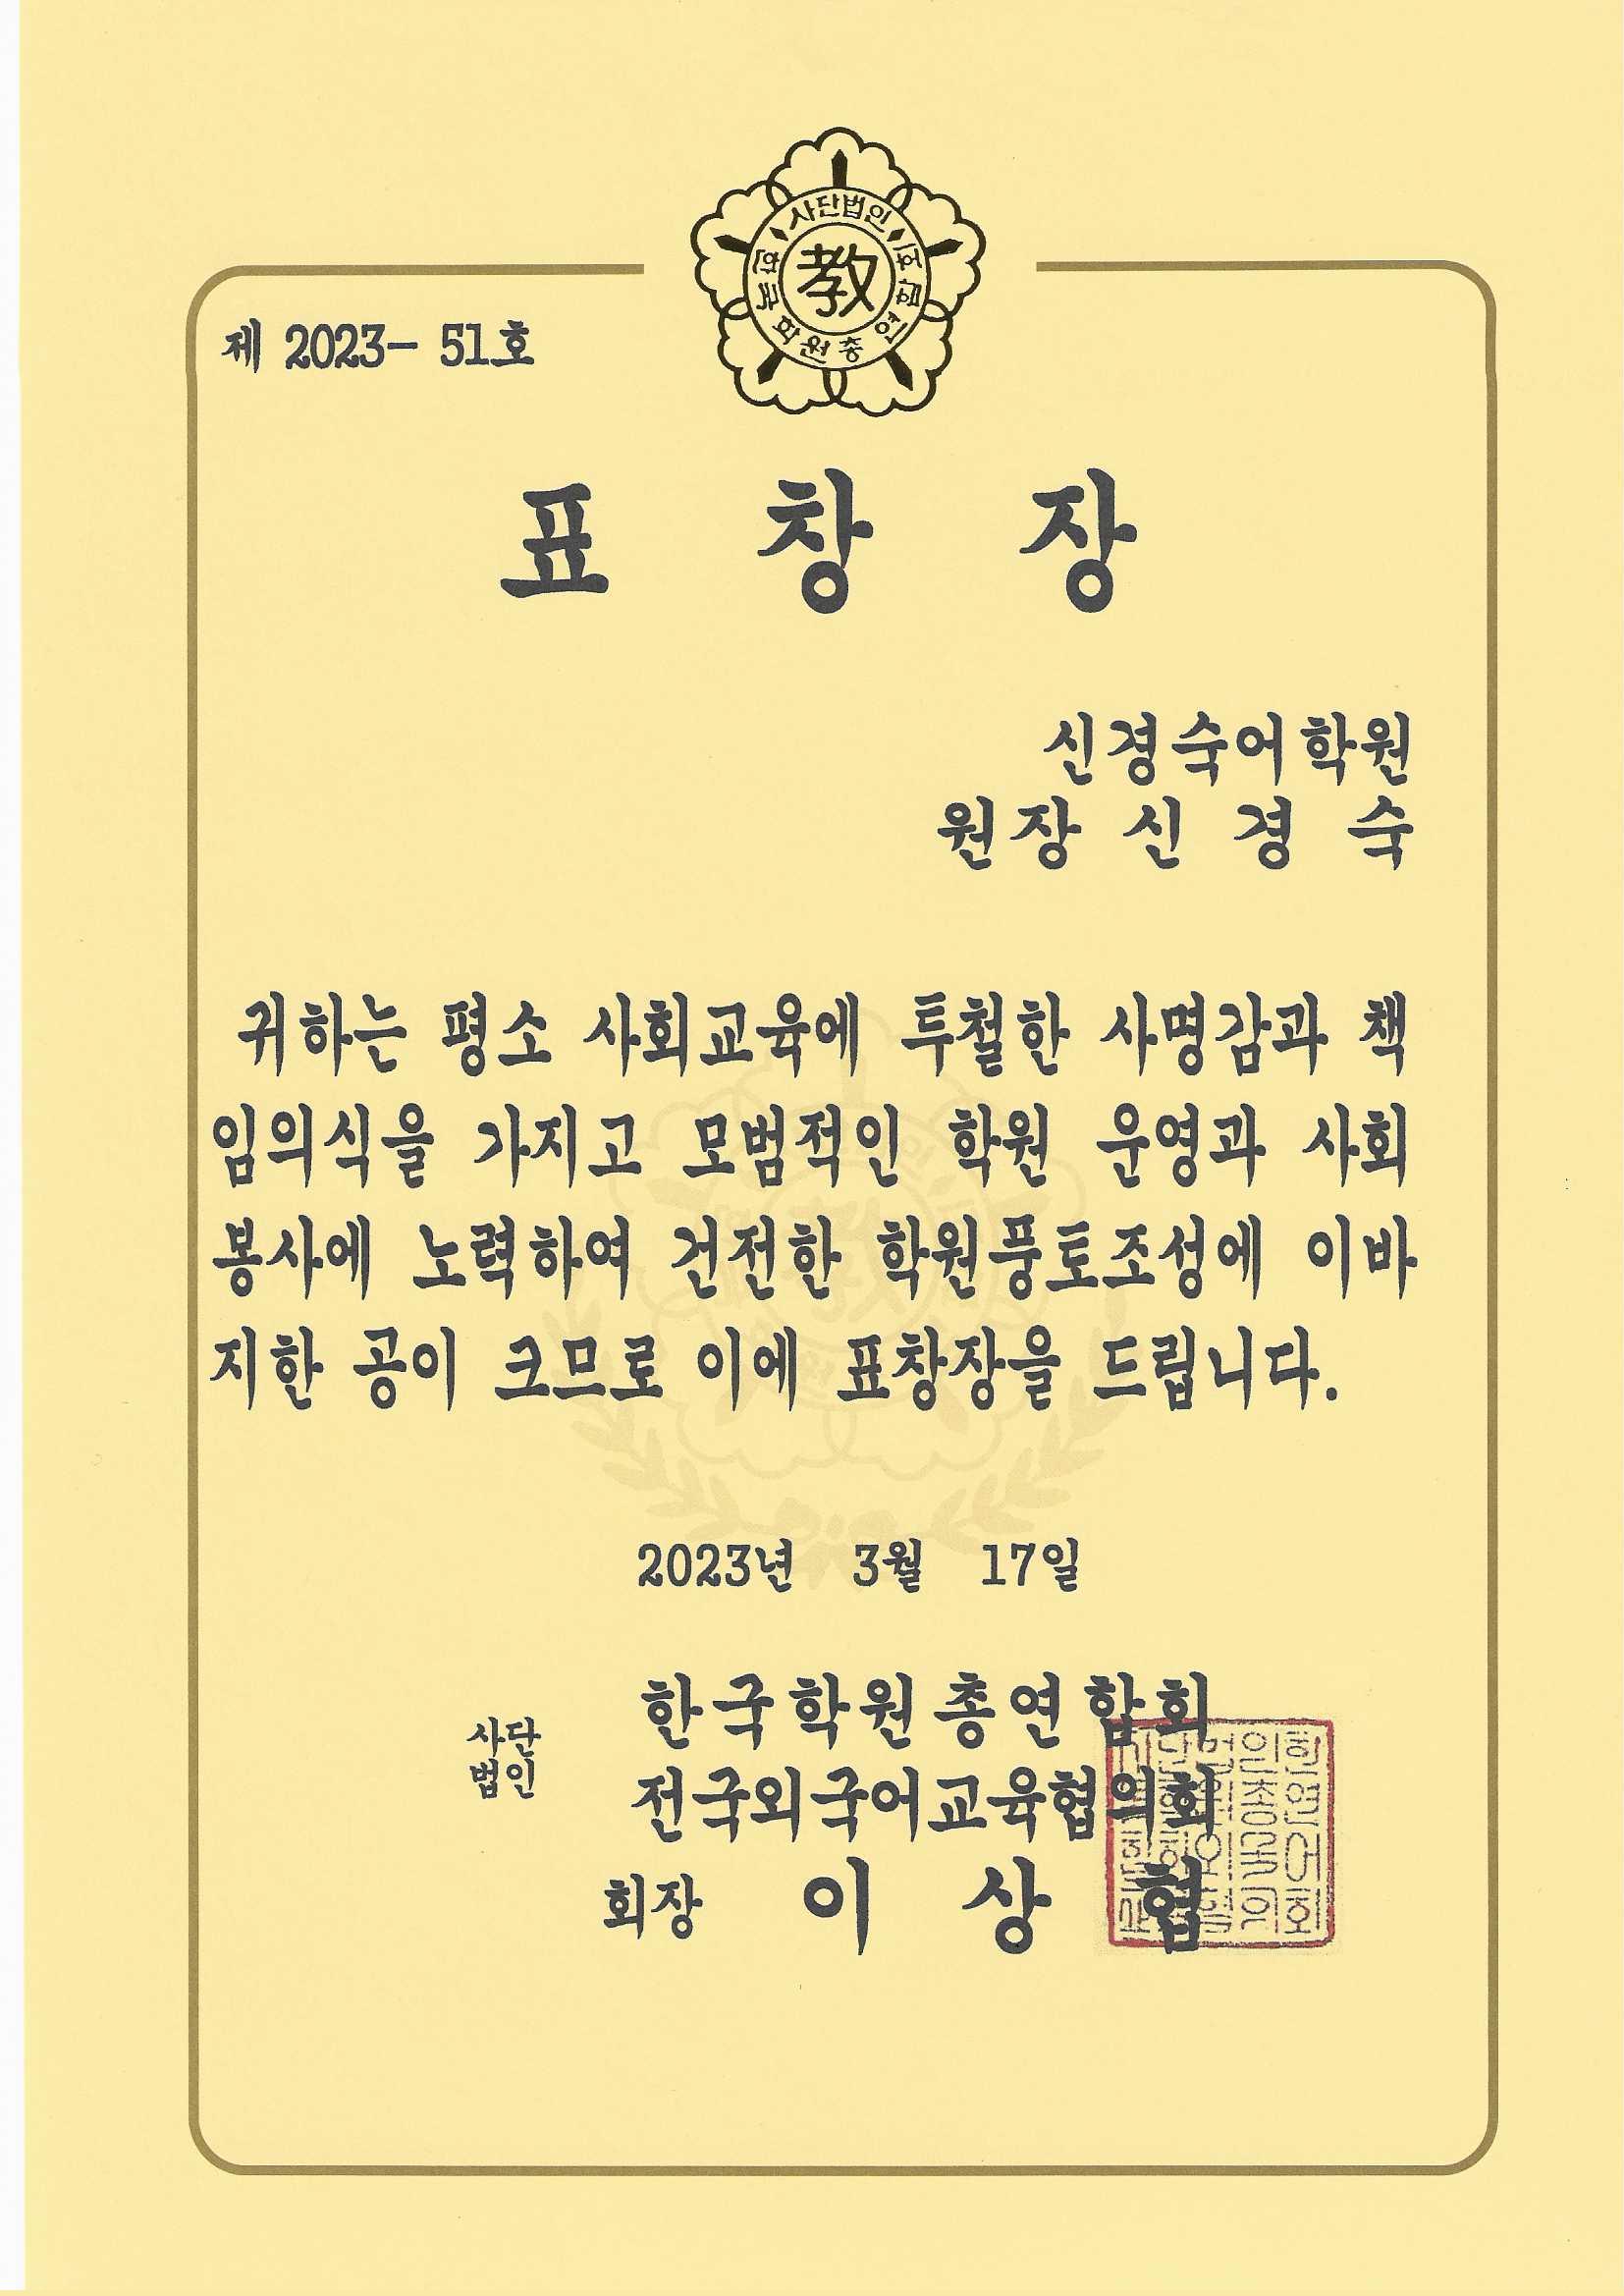 사단법인 한국학원총연합회
教
제 2023- 51호
표 창 장
신경숙어학원
원장 신 경 숙
귀하는 평소 사회교육에 투철한 사명감과 책
임의식을 가지고 모범적인 학원 운영과 사회
봉사에 노력하여 건전한 학원풍토조성에 이바
지한 공이 크므로 이에 표창장을 드립니다.
2023년 3월 17일
사단
법인
한국학원총연합회
전국외국어교육협의회
회장 이 상 협